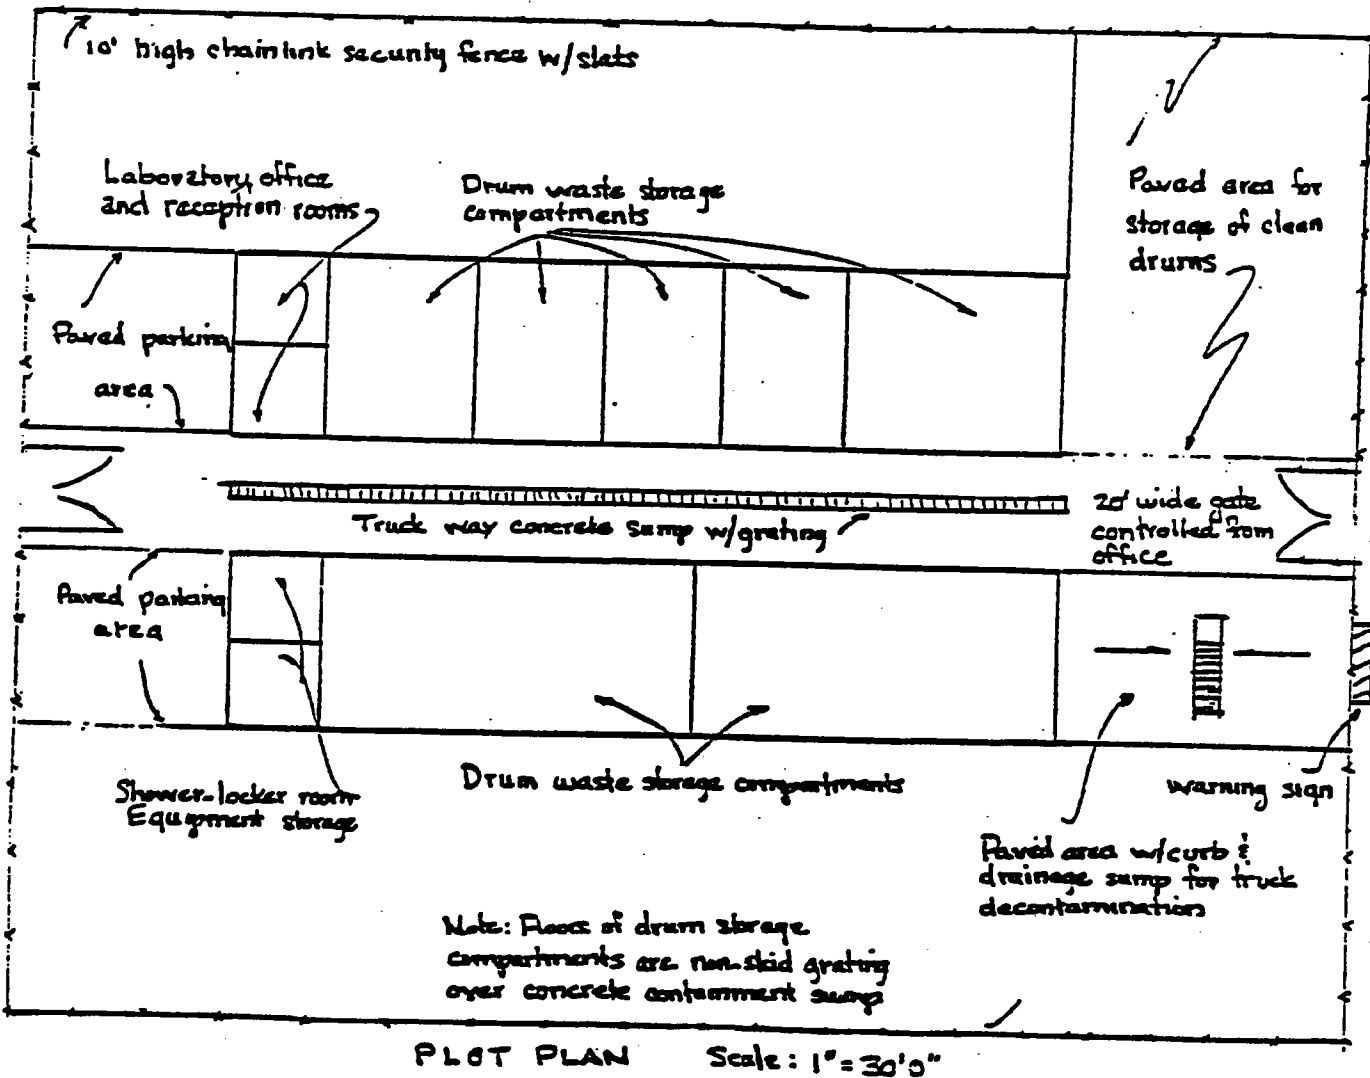 10' high chainlink security fence w/slats
Laboratory, office
and reception rooms
Drum waste storage
compartments
Paved area for
storage of clean
drums
Paved parking
area
Truck way concrete sump w/grating
20' wide gate
controlled from
office
Paved parking
area
Shower-locker room
Equipment storage
Drum waste storage compartments
warning sign
Paved area w/curb &
drainage sump for truck
decontamination
Note: Floors of drum storage
compartments are non-skid grating
over concrete containment sump
PLOT PLAN Scale: 1" = 30'0"